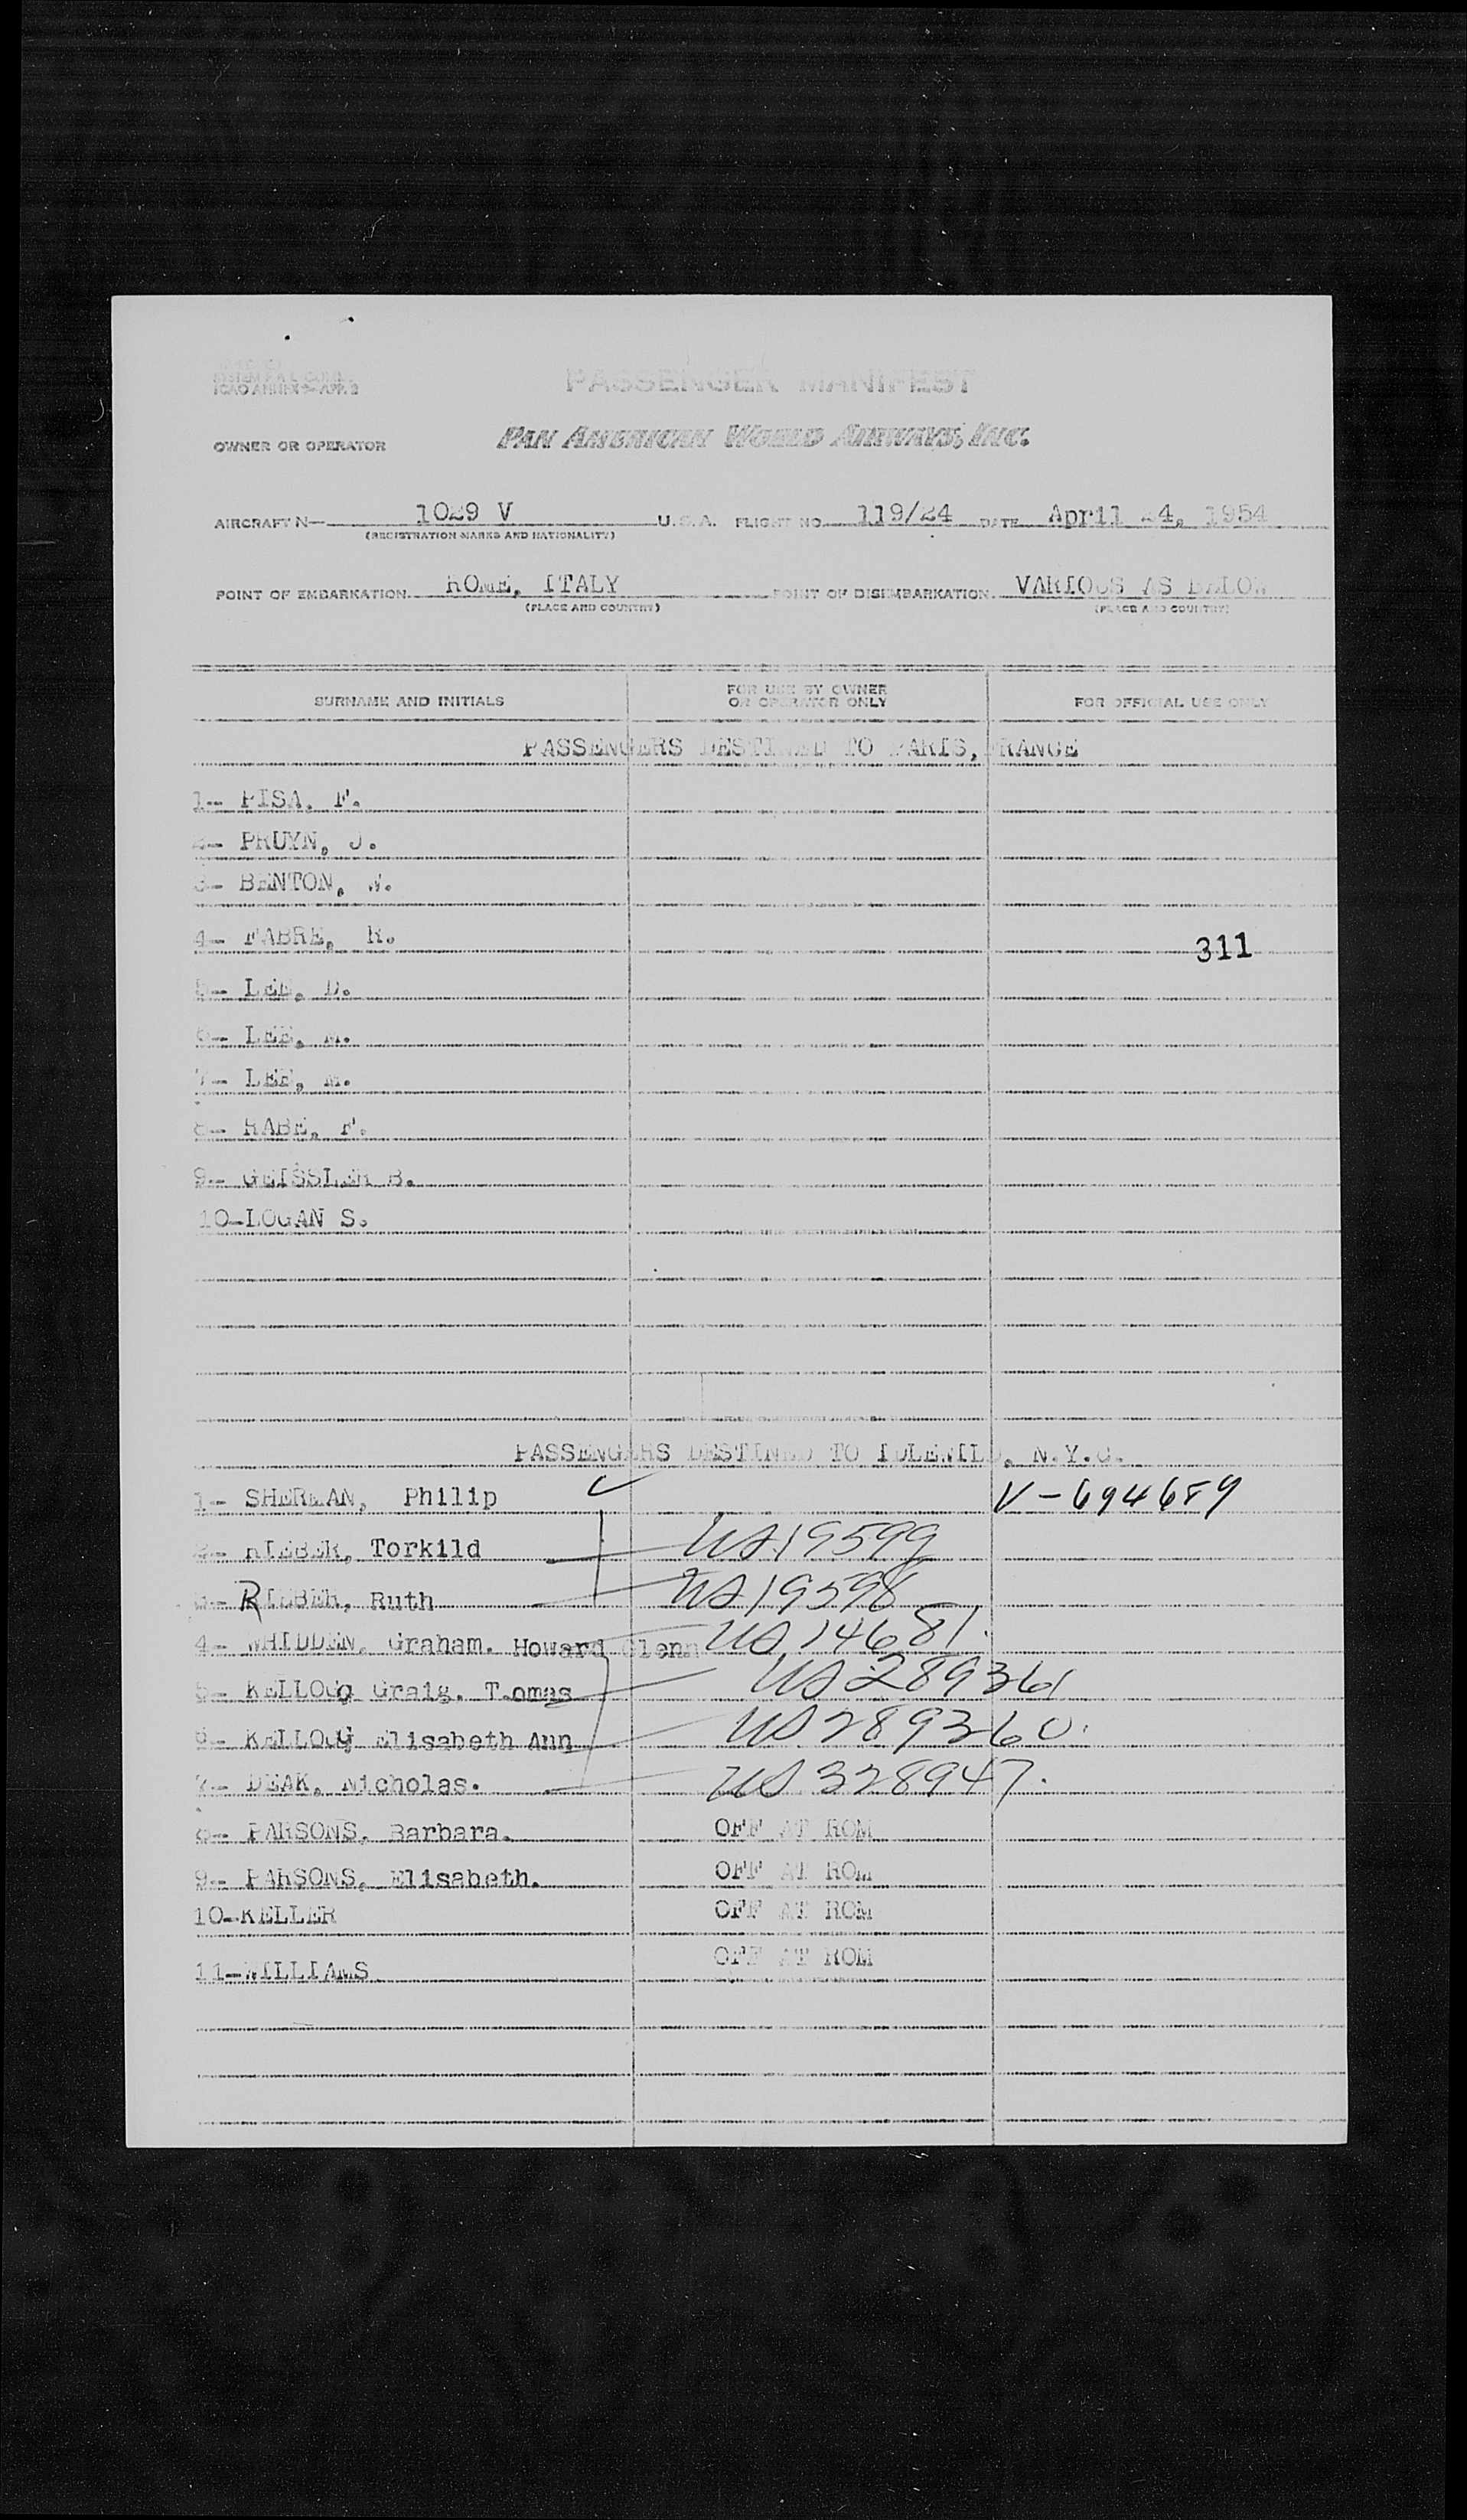 ICAO ANNEX 9- APP. 2
PASSENGER MANIFEST
OWNER OR OPERATOR PAN AMERICAN WORLD AIRWAYS, INC.
AIRCRAFT N- 1029 V U.S.A. FLIGHT NO. 119/24 DATE April 24, 1954
(REGISTRATION MARKS AND NATIONALITY)
POINT OF EMBARKATION ROME, ITALY POINT OF DISEMBARKATION VARIOUS AS BALOW
(PLACE AND COUNTRY) (PLACE AND COUNTRY)
SURNAME AND INITIALS FOR USE BY OWNER OR OPERATOR ONLY FOR OFFICIAL USE ONLY
PASSENGERS DESTINED TO PARIS, FRANCE
1- PISA, F.
2- PRUYN, J.
3- BENTON, W.
4- FABRE, R. 311
5- LEE, D.
6- LEE, M.
7- LEE, M.
8- RABE, F.
9- GEISSLER B.
10-LOGAN S.
PASSENGERS DESTINED TO IDLEWILD, N.Y.C.
1- Philip V-694689
2- RIEBER, Torkild US19599
3- RIEBER, Ruth US19598
4- WHIDDEN, Graham. Howard Glenn US 14681.
5- KELLOGG Graig. T.omas US 289361
6- KELLOGG Elisabeth Ann US 289360.
7- DEAK, Nicholas. US 328947.
8- PARSONS, Barbara. OFF AT ROM
9- PARSONS, Elisabeth. OFF AT ROM
10-KELLER OFF AT ROM
11-WILLIAMS OFF AT ROM